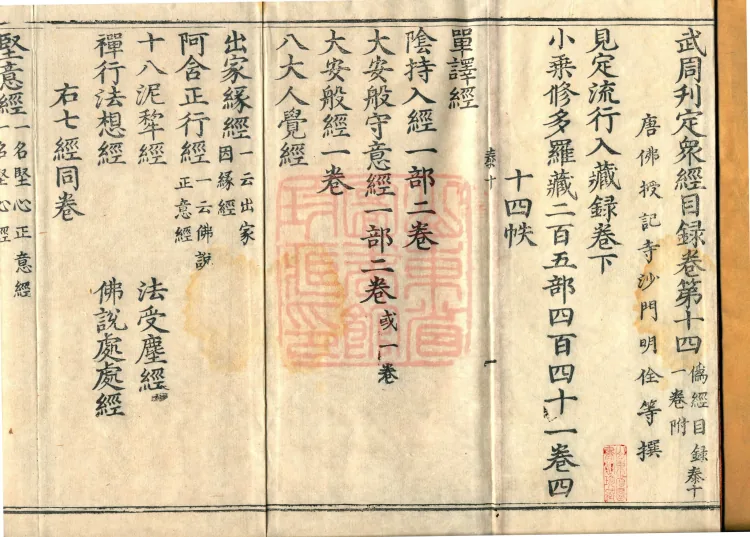 武周刊定衆經目録卷第十四 偽經目録 一卷附 泰十
唐佛授記寺沙門明佺等撰
見定流行入藏録卷下
小乗修多羅藏二百五部四百四十一卷四
十四帙
泰十 一
單譯經
陰持入經一部二卷
大安般守意經一部二卷或一卷
大安般經一卷
八大人覺經
出家縁經一云出家因縁經
阿含正行經一云佛說正意經
十八泥犂經 法受塵經
禪行法想經 佛說處處經
右七經同卷
堅意經一名堅心正意經一名堅心經